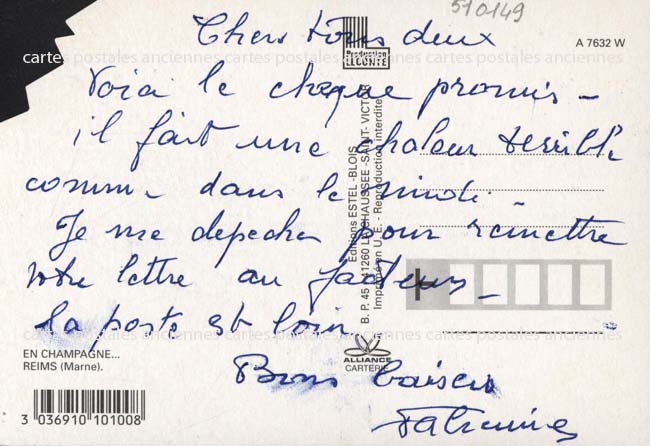 510149
Chers tous deux
A 7632 W
Production
LECONTE
cartes postales anciennes cartes postales anciennes cartes postales anciennes
Voici le cheque promis -
il fait une chaleur terrible
comme dans le midi -
Je me depeche pour remettre
votre lettre au facteur -
La poste est loin
Bons baisers
Editions ESTEL - BLOIS
B. P. 45 - 41260 LA CHAUSSEE - SAINT - VICTOR
Imprimé en U. E. - Reproduction interdite
EN CHAMPAGNE...
REIMS (Marne).
ALLIANCE
CARTERIE
3 036910 101008